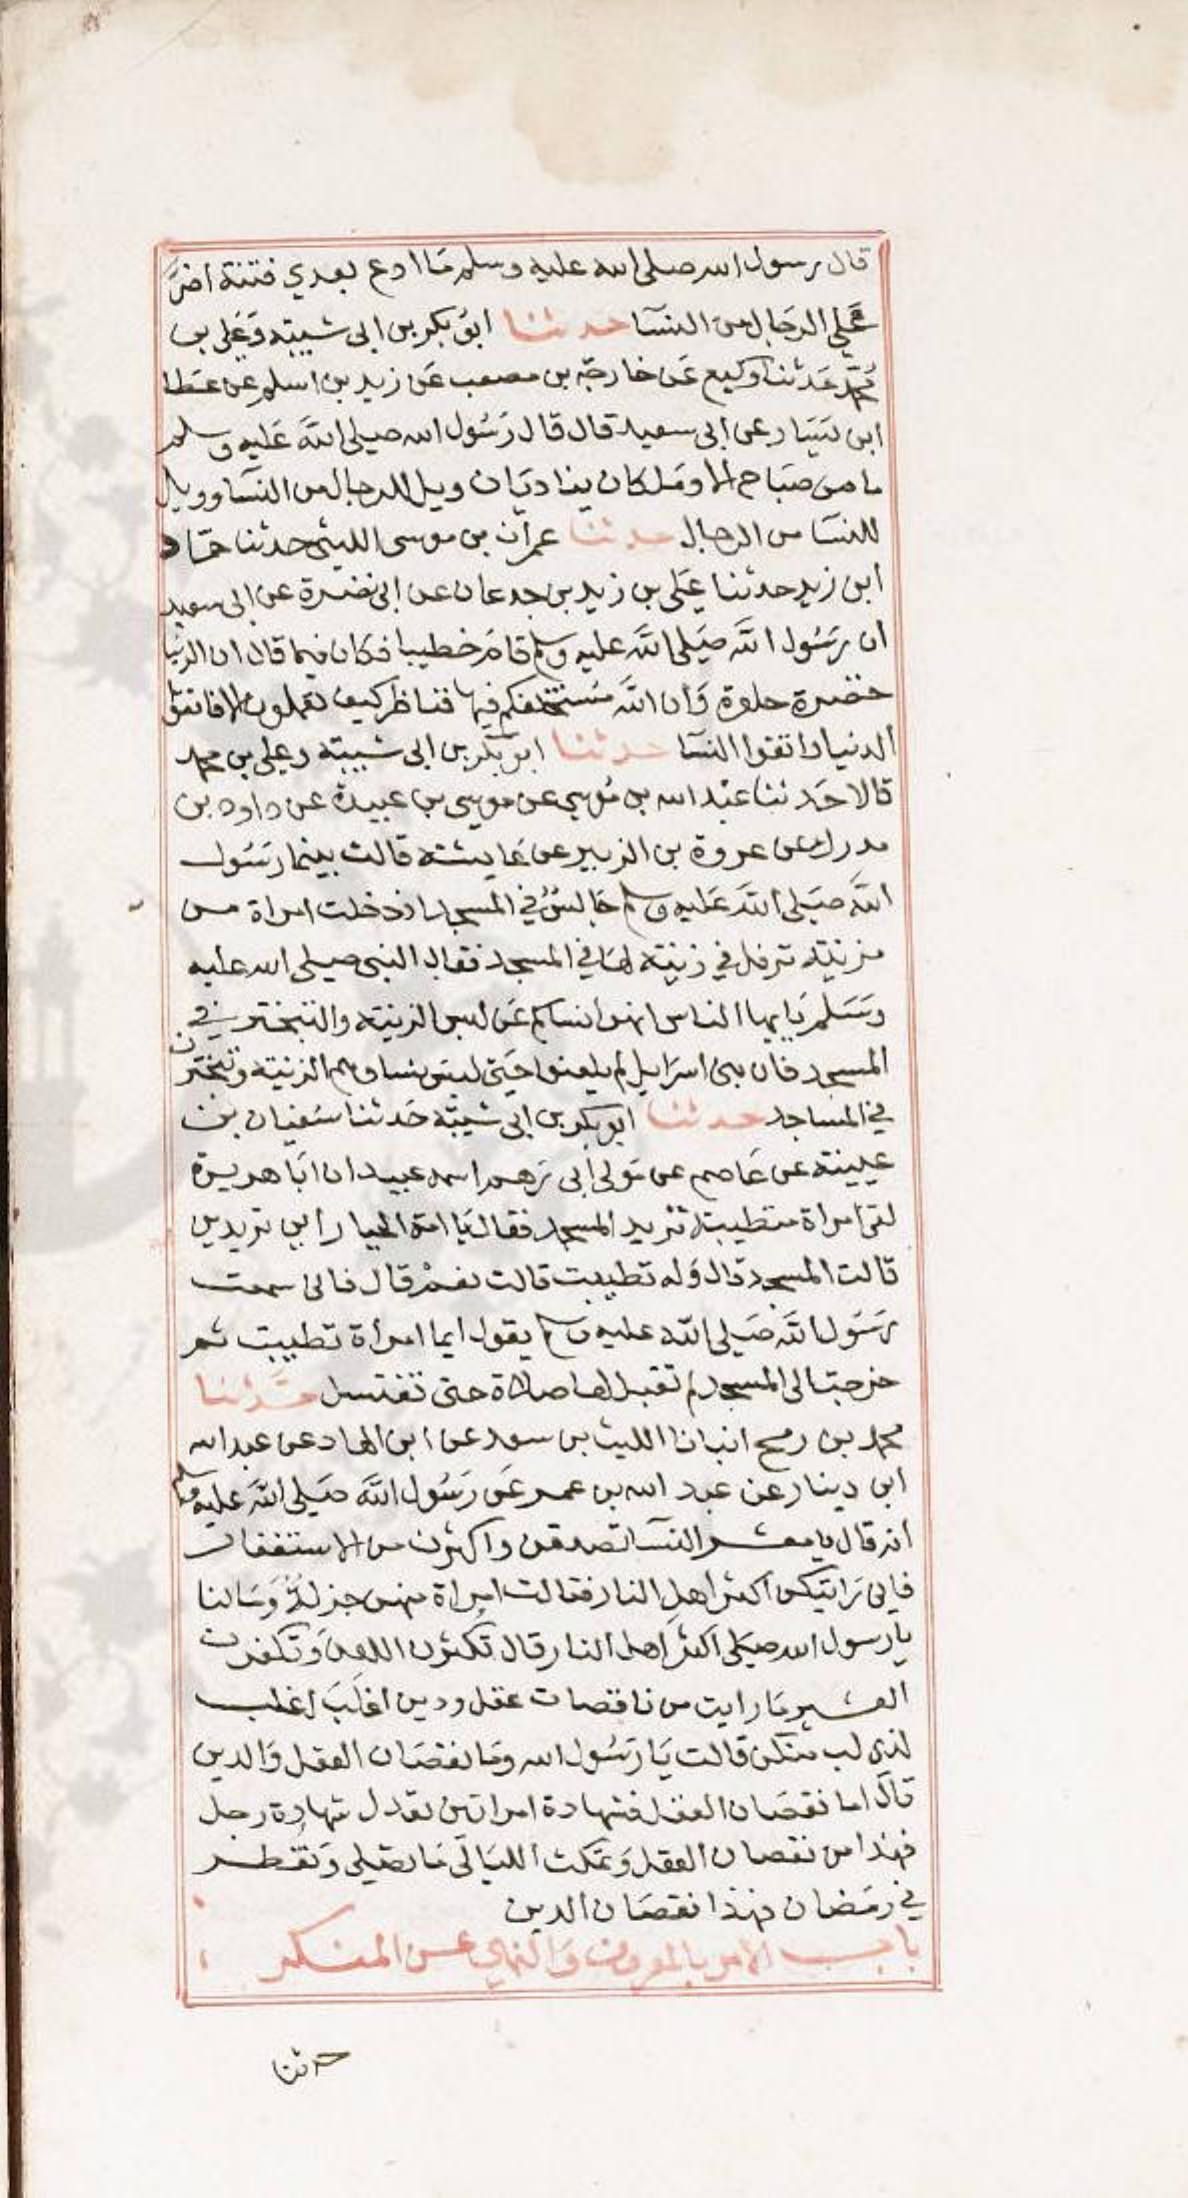 قال رسول الله صلى الله عليه وسلم ما ادع بعدي فتنة اضرَّ
على الرجال من النسآ حدثنا ابو بكر بن ابى شيبة وعلى بن
محمد حدثنا وكيع عن خارجة بن مصعب عن زيد بن اسلم عن عطا
ابن يسار عن ابى سعيد قال قال رسول الله صلى الله عليه وسلم
ما من صباح الا وملكان يناديان ويل للرجال من النسآ وويل
للنسآ من الرجال حدثنا عمران بن موسى الليثى حدثنا حماد
ابن زيد حدثنا على بن زيد بن جدعان عن ابى نضرة عن ابى سعيد
ان رسول الله صلى الله عليه وسلم قام خطيبا فكان فيما قال ان الدنيا
خضرة حلوة وان الله مستخلفكم فيها فناظر كيف تعملون الا فاتقوا
الدنيا واتقوا النسآ حدثنا ابو بكر بن ابى شيبة وعلى بن محمد
قالا حدثنا عبد الله بن موسى عن موسى بن عبيدة عن داود بن
مدرك عن عروة بن الزبير عن عايشة قالت بينما رسول
الله صلى الله عليه وسلم جالسٌ في المسجد اذ دخلت امراة من
مزينة ترفل في زينة لها في المسجد فقال النبى صلى الله عليه
وسلم يايها الناس انهو انساكم عن لبس الزينة والتبختر في
المسجد فان بنى اسرايل لم يلعنوا حتى لبس نساوهم الزينة وتبخترن
في المساجد حدثنا ابو بكر بن ابى شيبة حدثنا سفيان بن
عيينة عن عاصم عن مولى ابى رهم اسمه عبيد ان ابا هريرة
لقى امراة متطيبة تريد المسجد فقال يا امة الجبار اين تريدين
قالت المسجد قال وله تطيبت قالت نعم قال فانى سمعت
رسول الله صلى الله عليه وسلم يقول ايما امراة تطيبت ثم
خرجت الى المسجد لم تقبل لها صلاة حتى تغتسل حدثنا
محمد بن رمح انبانا الليث بن سعد عن ابن الهاد عن عبد الله
ابن دينار عن عبد الله بن عمر عن رسول الله صلى الله عليه وسلم
انه قال يا معشر النسآ تصدقن واكثرن من الاستغفار
فانى رايتكن اكثر اهل النار فقالت امراة منهن جزلةٌ ومالنا
يا رسول الله صلى اكثر اهل النار قال تكثرن اللعن وتكفرن
العشير ما رايت من ناقصات عقل ودين اغلب اغلب
لذي لب منكن قالت يا رسول الله وما نقصان العقل والدين
قال اما نقصان العقل فشهادة امراتين تعدل شهادة رجل
فهذا من نقصان العقل وتمكث الليالى ما تصلى وتفطر
في رمضان فهذا نقصان الدين
باب الامر بالمعروف والنهاي عن المنكر
حدثنا